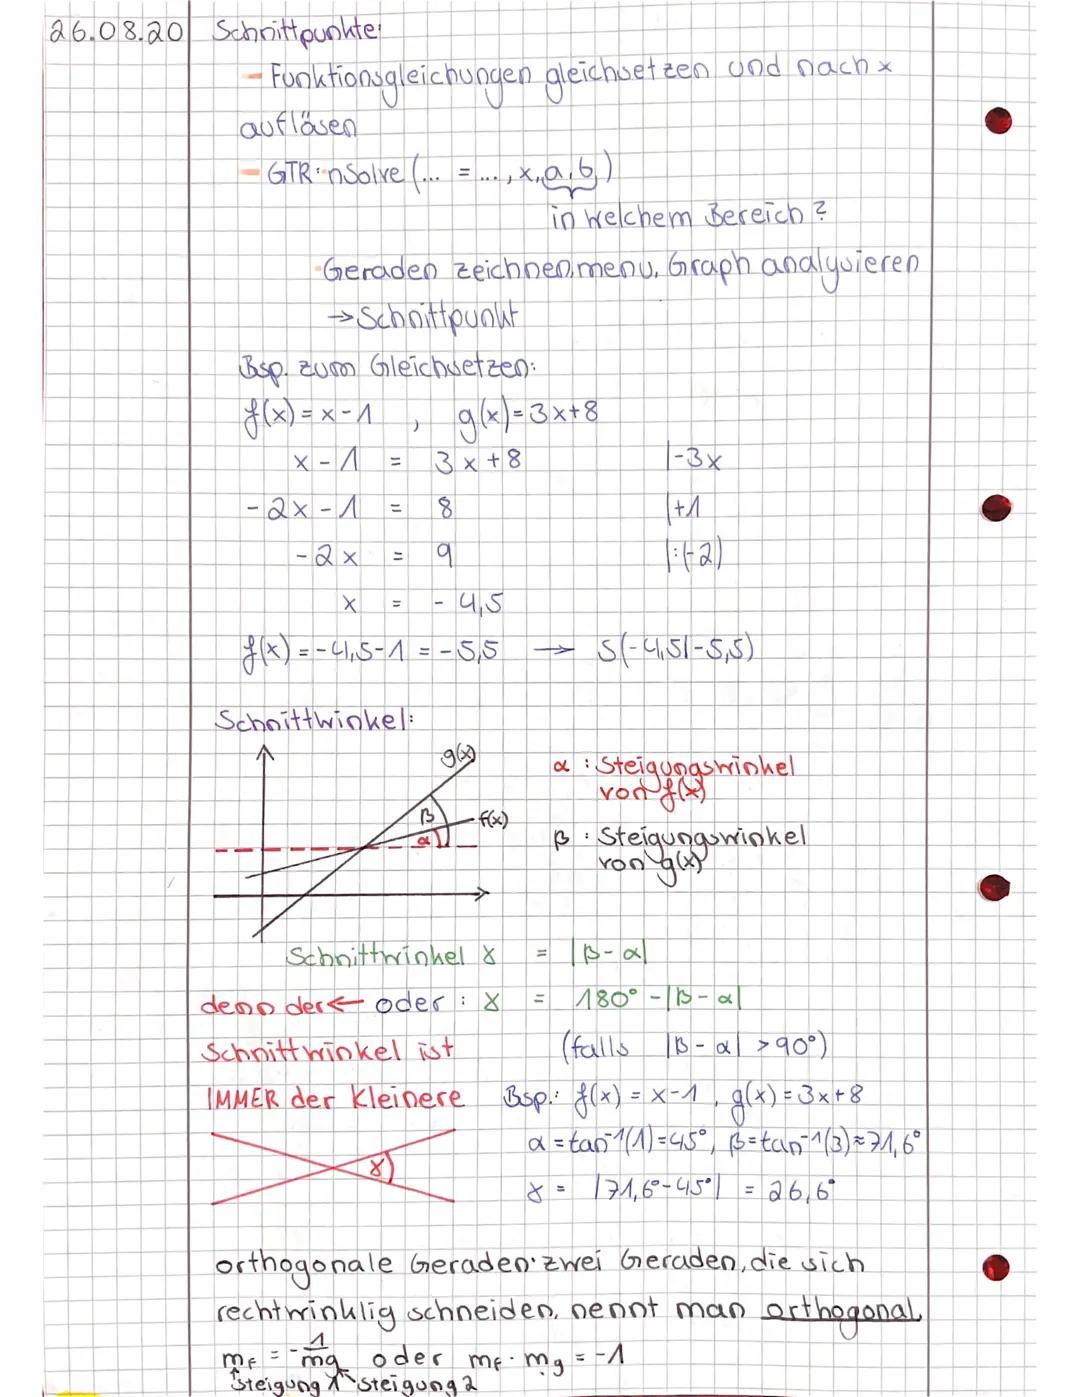 26.08.20 Schnittpunkte:
- Funktionsgleichungen gleichsetzen und nach x
auflösen
- GTR: nSolve (... = ..., x, a, b)
in welchem Bereich?
Geraden zeichnen, menu, Graph analysieren
→ Schnittpunkt
Bsp. zum Gleichsetzen:
f(x) = x - 1 , g(x) = 3x + 8
x - 1 = 3x + 8 |-3x
-2x - 1 = 8 |+1
-2x = 9 |:(-2)
x = -4,5
f(x) = -4,5 - 1 = -5,5 → S(-4,5|-5,5)
Schnittwinkel:
g(x)
β
f(x)
α
α : Steigungswinkel
von f(x)
β : Steigungswinkel
von g(x)
Schnittwinkel γ = |β - α|
denn der ← oder : γ = 180° - |β - α|
Schnittwinkel ist (falls |β - α| > 90°)
IMMER der kleinere Bsp.: f(x) = x - 1 , g(x) = 3x + 8
α = tan⁻¹(1) = 45°, β = tan⁻¹(3) ≈ 71,6°
γ
γ = |71,6° - 45°| = 26,6°
orthogonale Geraden: zwei Geraden, die sich
rechtwinklig schneiden, nennt man orthogonal.
m_f = -1/m_g oder m_f · m_g = -1
Steigung 1 Steigung 2